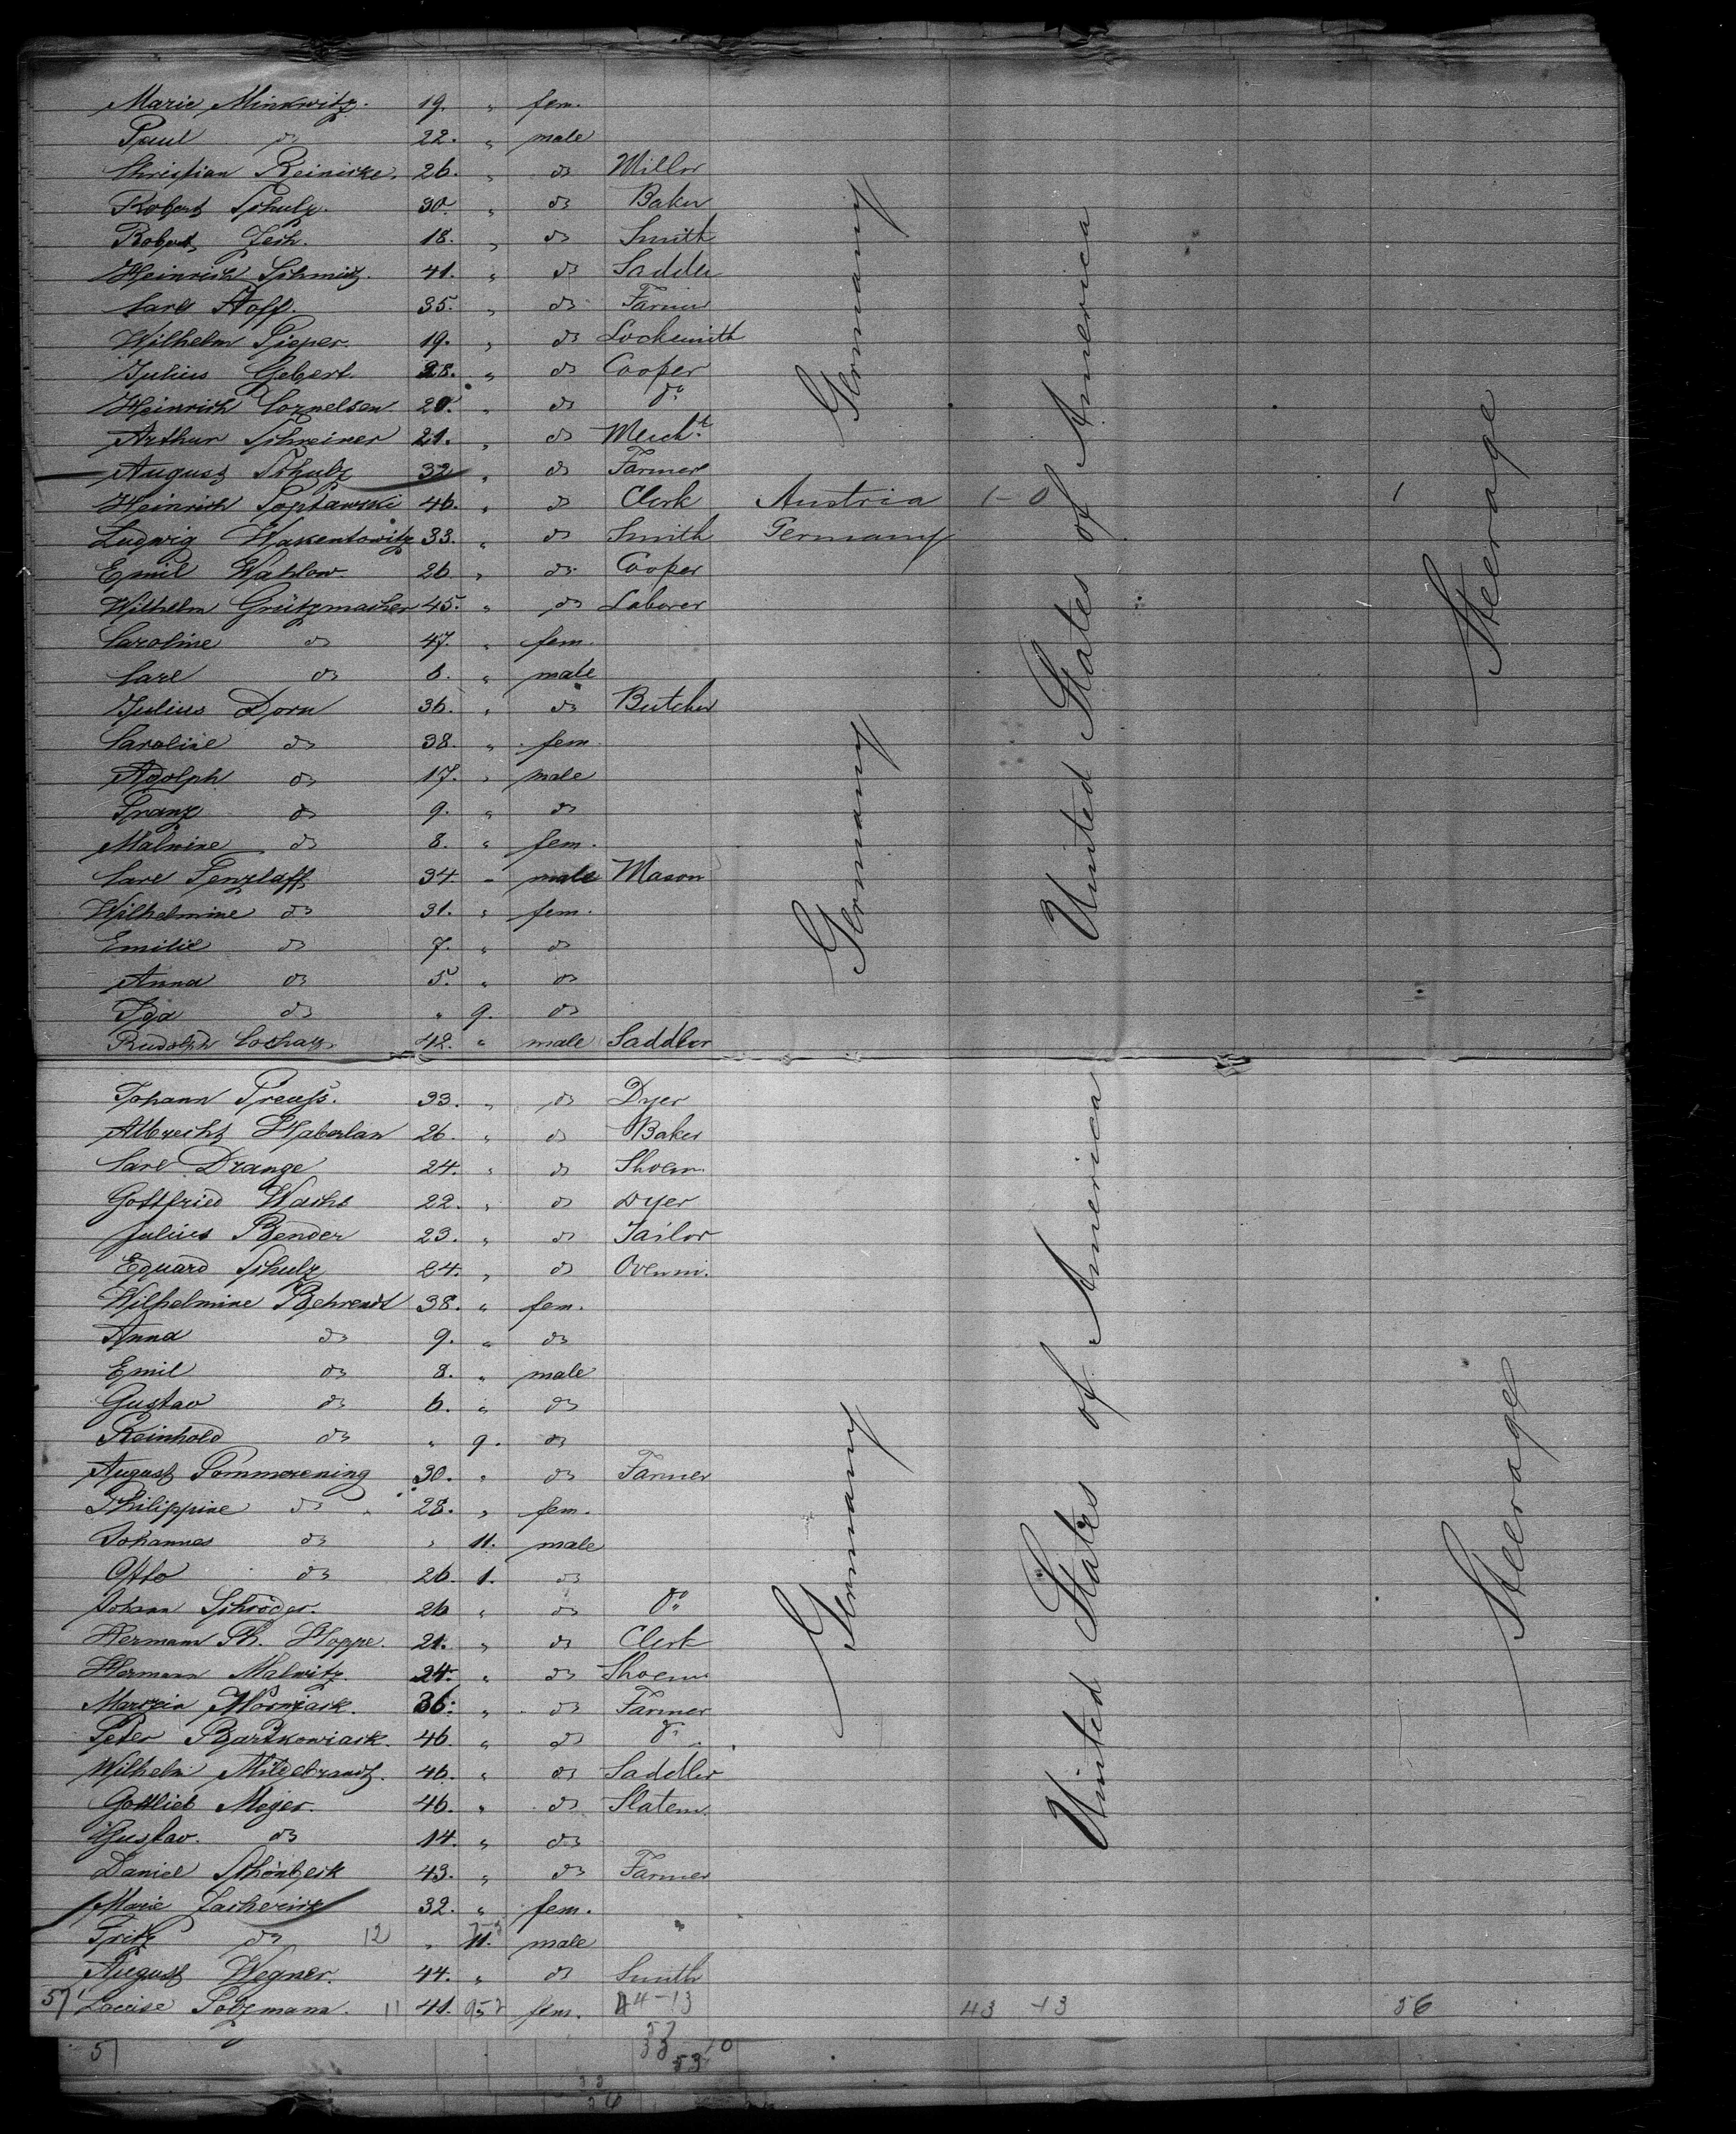 Marie Minkwitz. 19. " fem.
Paul do 22. " male
Christian Reinicke. 26. " do Miller
Robert Schulz. 30. " do Baker
Robert Zech. 18. " do Smith
Heinrich Schmitz. 41. " do Saddler
Carl Hoff. 35. " do Farmer
Wilhelm Pieper. 19. " do Locksmith
Julius Gebert. 28. " do Cooper
Heinrich Cornelsen. 20. " do do
Arthur Schreiner 21. " do Mercht
August Schulz 32 " do Farmer
Heinrich 46. " do Clerk Austria 1-0 1
Ludwig Wakentowitz 33. " do Smith Germany
Emil Wahlow. 26. " do Cooper
Wilhelm Grützmacher 45. " do Laborer
Caroline do 47. " fem.
Carl do 6. " male
Julius Dorn 36. " do Butcher
Caroline do 38. " fem.
Adolph do 17. " male
Franz do 9. " do
Malwine do 8. " fem.
Carl Tenzlaff 34. " male Mason
Wilhelmine do 31. " fem.
Emilie do 7. " do
Anna do 5. " do
Ida do " 9. do
Rudolph 42. " male Saddler
Germany
Germany
United States of America
Steerage
Johann Preuß. 33. " do Dyer
Albrecht Haberlan 26. " do Baker
Carl Drange 24. " do Shoem.
Gottfried Wachs 22. " do Dyer
Julius Bender 23. " do Tailor
Eduard Schulz 24. " do Ovenm.
Wilhelmine Behrendt 38. " fem.
Anna do 9. " do
Emil do 8. " male
Gustav do 6. " do
Reinhold do " 9. do
August Pommerening 30. " do Farmer
Philippine do 28. " fem.
Johannes do " 11. male
Otto do 26. 1. do
Johann Schröder. 26 " do do
Hermann Th. Hoppe. 21. " do Clerk
Hermann Malwitz. 24. " do Shoem
36. " do Farmer
Peter Bartkowiack. 46. " do do
Wilhelm Hildebrandt. 46. " do Saddler
Gottlieb Meyer. 46. " do Slatem.
Gustav. do 14. " do
Daniel Schönbeck 43. " do Farmer
Marie 32. " fem.
Fritz do 12 " 11. male
August Wegner. 44. " do Smith
57 Louise Polzmann. 11 41. fem. 44-13 43 -13 56
Germany
United States of America
Steerage
57
53
26